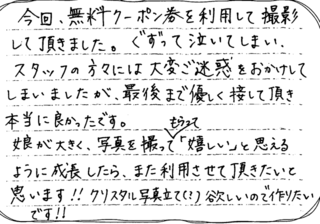 今回、無料クーポン券を利用して撮影
して頂きました。ぐずって泣いてしまい、
スタッフの方々には大変ご迷惑をおかけして
しまいましたが、最後まで優しく接して頂き
本当に良かったです。
娘が大きく、写真を撮ってもらって「嬉しい」と思える
ように成長したら、また利用させて頂きたいと
思います!! クリスタル写真立て(?) 欲しいので作りたい
です!!